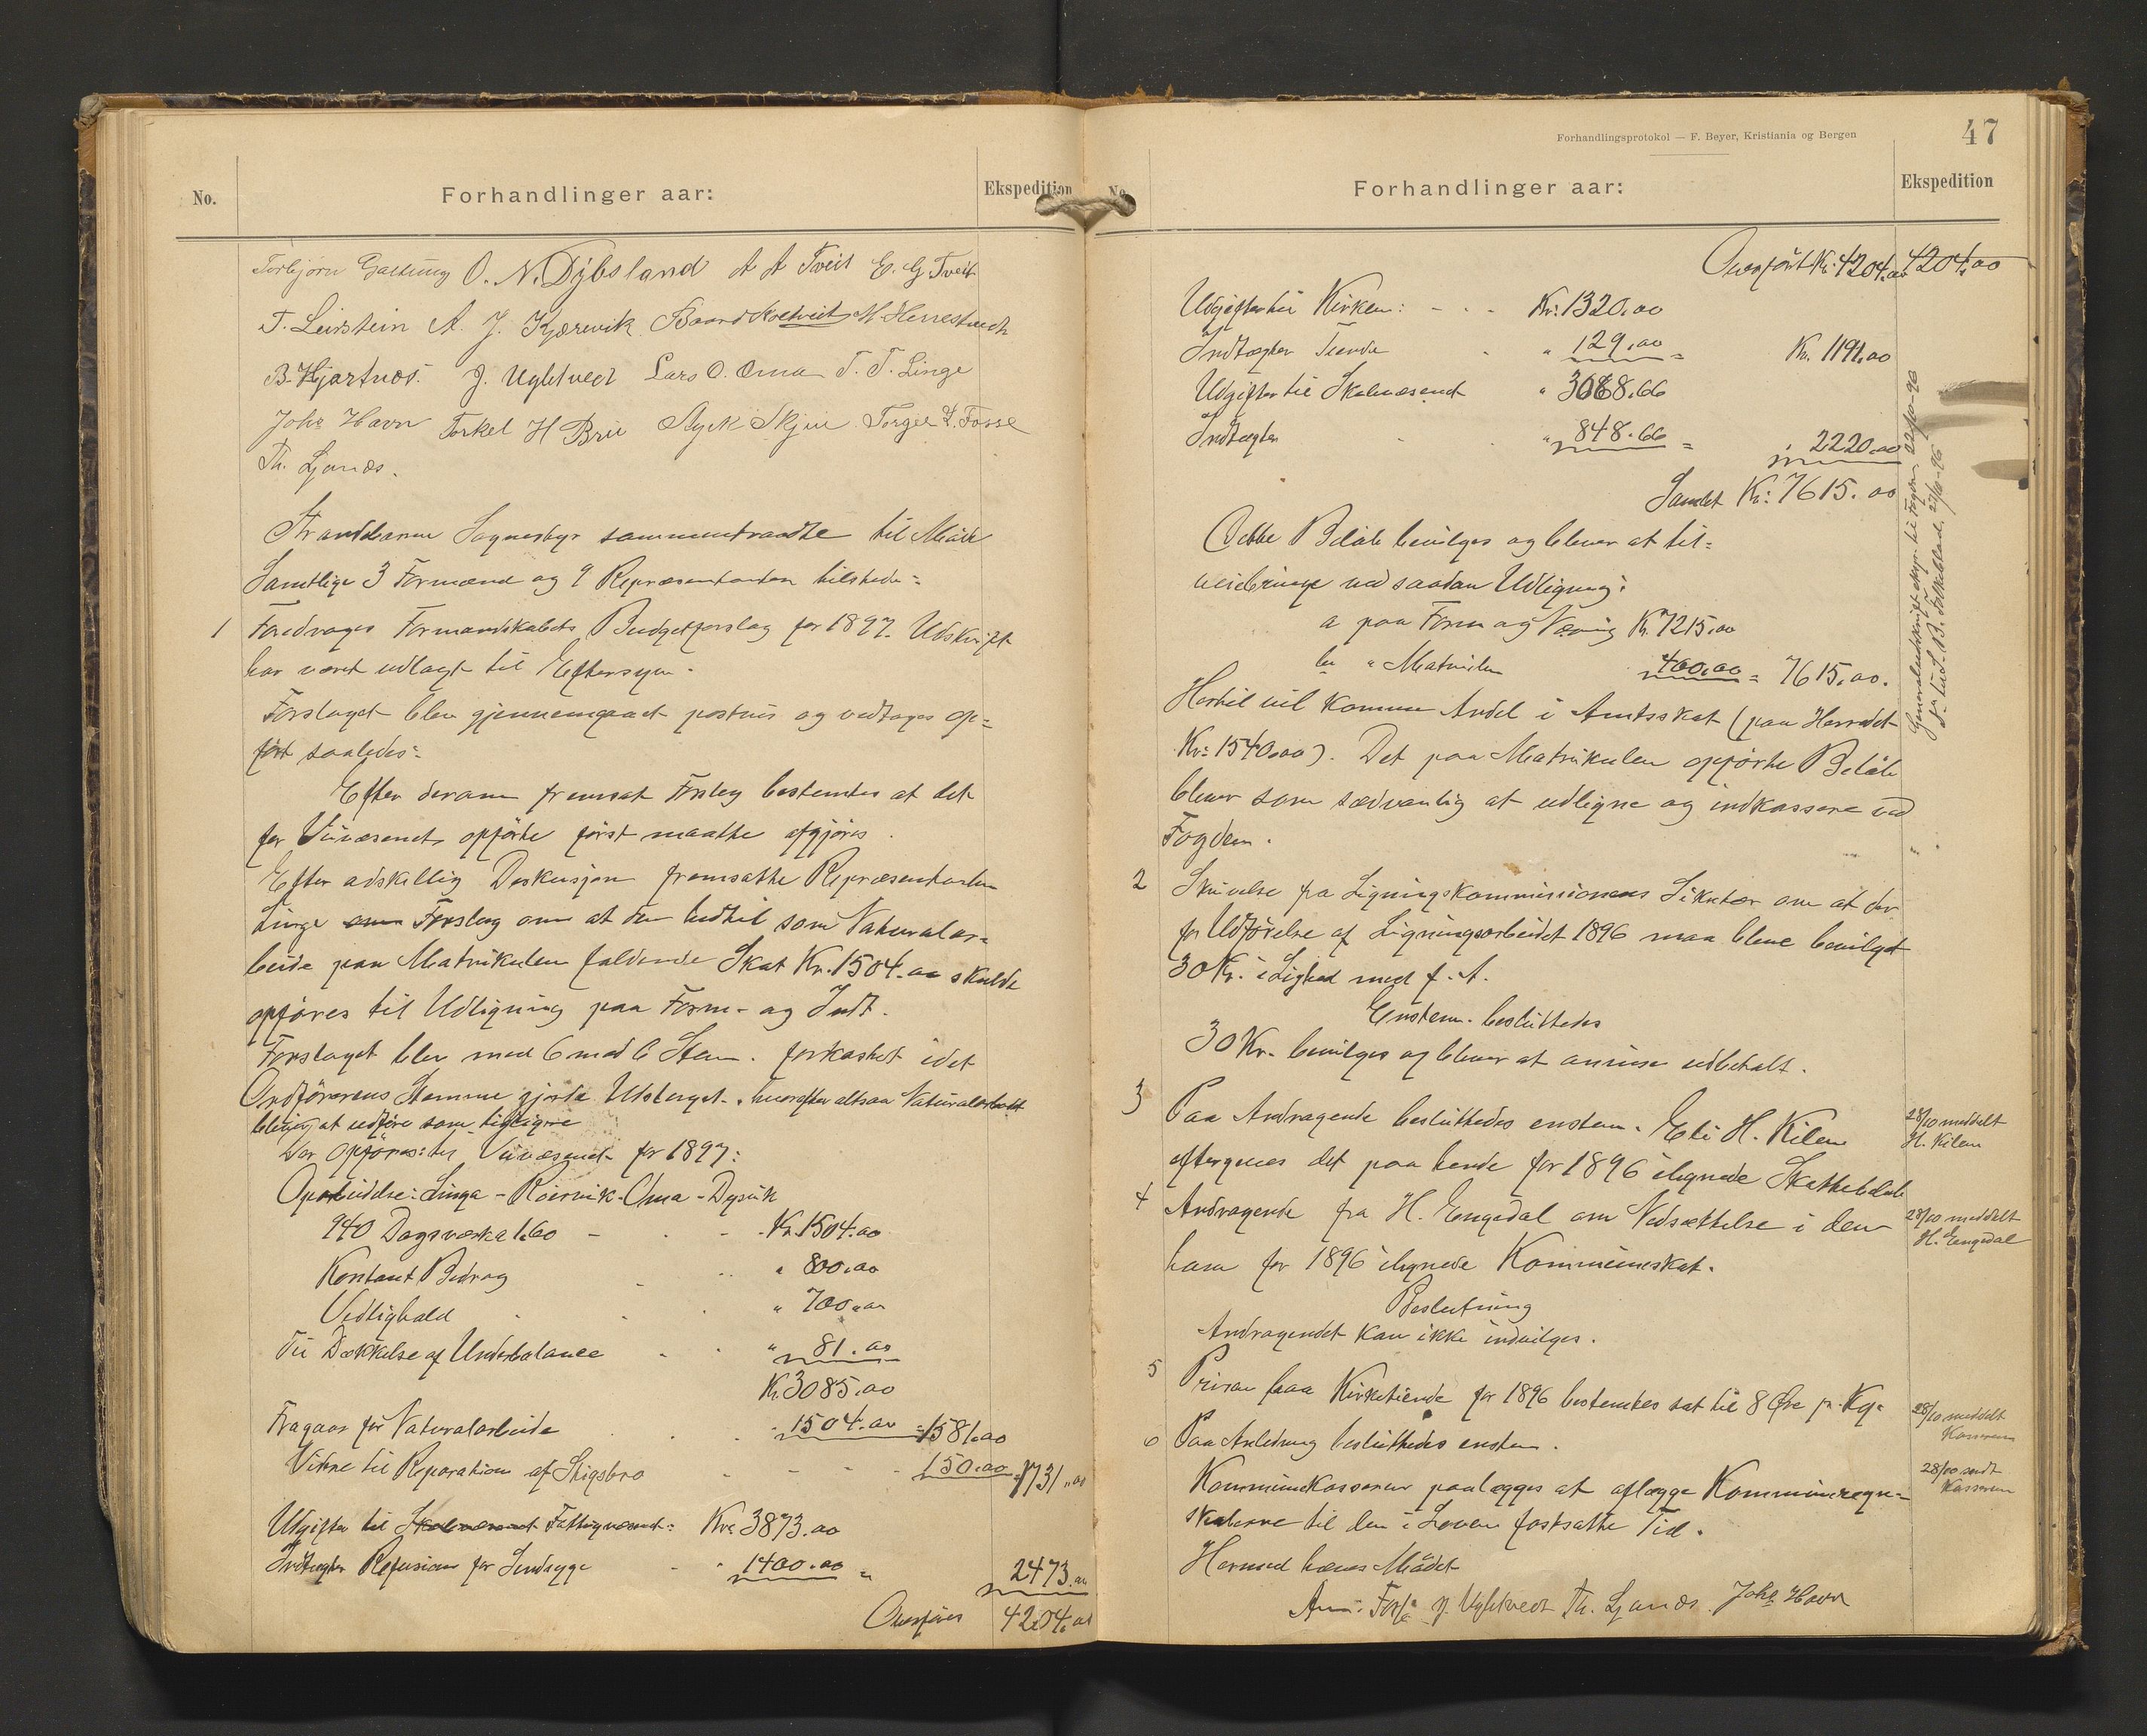 No.
Forhandlinger aar:
Ekspedition
Torbjørn Galtung O. N. Dybsland A A Tveit E. G. Tveit
T. Leirstein A. J. Kjærevik Baard M. Herrestvedt
B. Hjartnæs. J. Ugletvedt Lars O. Oma T. T. Linge
Johs Havn Torkel H Bru Skjeie Torger T. Fosse
Th. Ljonæs.
Strandebarm Sognestyr sammentraadte til Møde
Samtlige 3 Formænd og 9 Repræsentanter tilstede:
1 Foredroges Formandskabets Budgetforslag for 1897. Udskrift
har været udlagt til Eftersyn.
Forslaget blev gjennemgaaet postvis og vedtoges op=
ført saaledes:
Efter derom fremsat Forslag bestemtes at det
for Veivæsenet opførte først maatte afgjøres.
Efter adskillig Deskusjon fremsatte Repræsentanten
Linge Forslag om at den hidtil som Naturalar=
beide paa Matrikulen faldende Skat Kr. 1504.00 skulde
opføres til Udligning paa Form- og Indt.
Forslaget blev med 6 mod 6 Stem. forkastet idet
Ordførerens Stemme gjorde Udslaget. hvorefter altsaa Naturalarbeidet
bliver at udføre som tidligere
Der opføres til Veivæsenet for 1897:
Oparbeidelse: Linga - Røiervik - Oma - Dysvik
940 Dagsværke 1.60 - Kr. 1504.00
Kontant Bidrag " 800.00
Vedlighold " 700.00
Til Dækkelse af Underbalance " 81.00
Kr. 3085.00
Fragaar for Naturalarbeide 1504.00 = 1581.00
Videre til Reparation af Skigsbro 150.00 = 1731.00
Udgifter til Skolevæsenet Fattigvæsenet: Kr. 3873.00
Indtægter Refusion for Sindsyge " 1400.00 = 2473.00
Overføres 4204.00
Forhandlingsprotokol — F. Beyer, Kristiania og Bergen
47
No.
Forhandlinger aar:
Ekspedition
Overført Kr: 4204.00 4204.00
Udgifter til Kirken: - - - Kr: 1320.00
Indtægter Tiende " 129.00 = Kr. 1191.00
Udgifter til Skolevæsenet " 3068.66
Indtægter " 848.66 = " 2220.00
Samlet Kr: 7615.00
Dette Beløb bevilges og bliver at til=
veiebringe ved saadan Udligning:
a paa Form og Næring Kr. 7215.00
b " Matriklen 400.00 = 7615.00.
Hertil vil komme Andel i Amtsskat (paa Herredet
Kr: 1540.00). Det paa Matrikulen opførte Beløb
bliver som sædvanlig at udligne og indkassere ved
Fogden.
Generaludskrift til Fogden 22/10-96
2 Skrivelse fra Ligningskommissionens Sekretær om at der
for Udførelse af Ligningsarbeidet 1896 maa blive bevilget
30 Kr. i Lighed med f. A.
Enstem. besluttedes
30 Kr. bevilges og bliver at anvise udbetalt.
3 Paa Andragende besluttedes enstem. Eli H. Kilen
eftergives det paa hende for 1896 ilignede Skattebeløb
28/10 meddelt
H. Kilen
4 Andragende fra H. Engedal om Nedsættelse i den
ham for 1896 ilignede Kommuneskat.
28/10 meddelt
H. Engedal
Beslutning
Andragendet kan ikke indvilges.
5 Prisen paa Kirketiende for 1896 bestemtes sat til 8 Øre pr. Kg.
28/10 meddelt
Kasserer
6 Paa Anledning besluttedes enstem.
Kommunekasserer paalægges at aflægge Kommuneregn=
skaberne til den i Loven fastsatte Tid.
28/10 sendt
Kasserer
Hermed hæves Mødet
J. Ugletvedt Th. Ljonæs Johs Havn